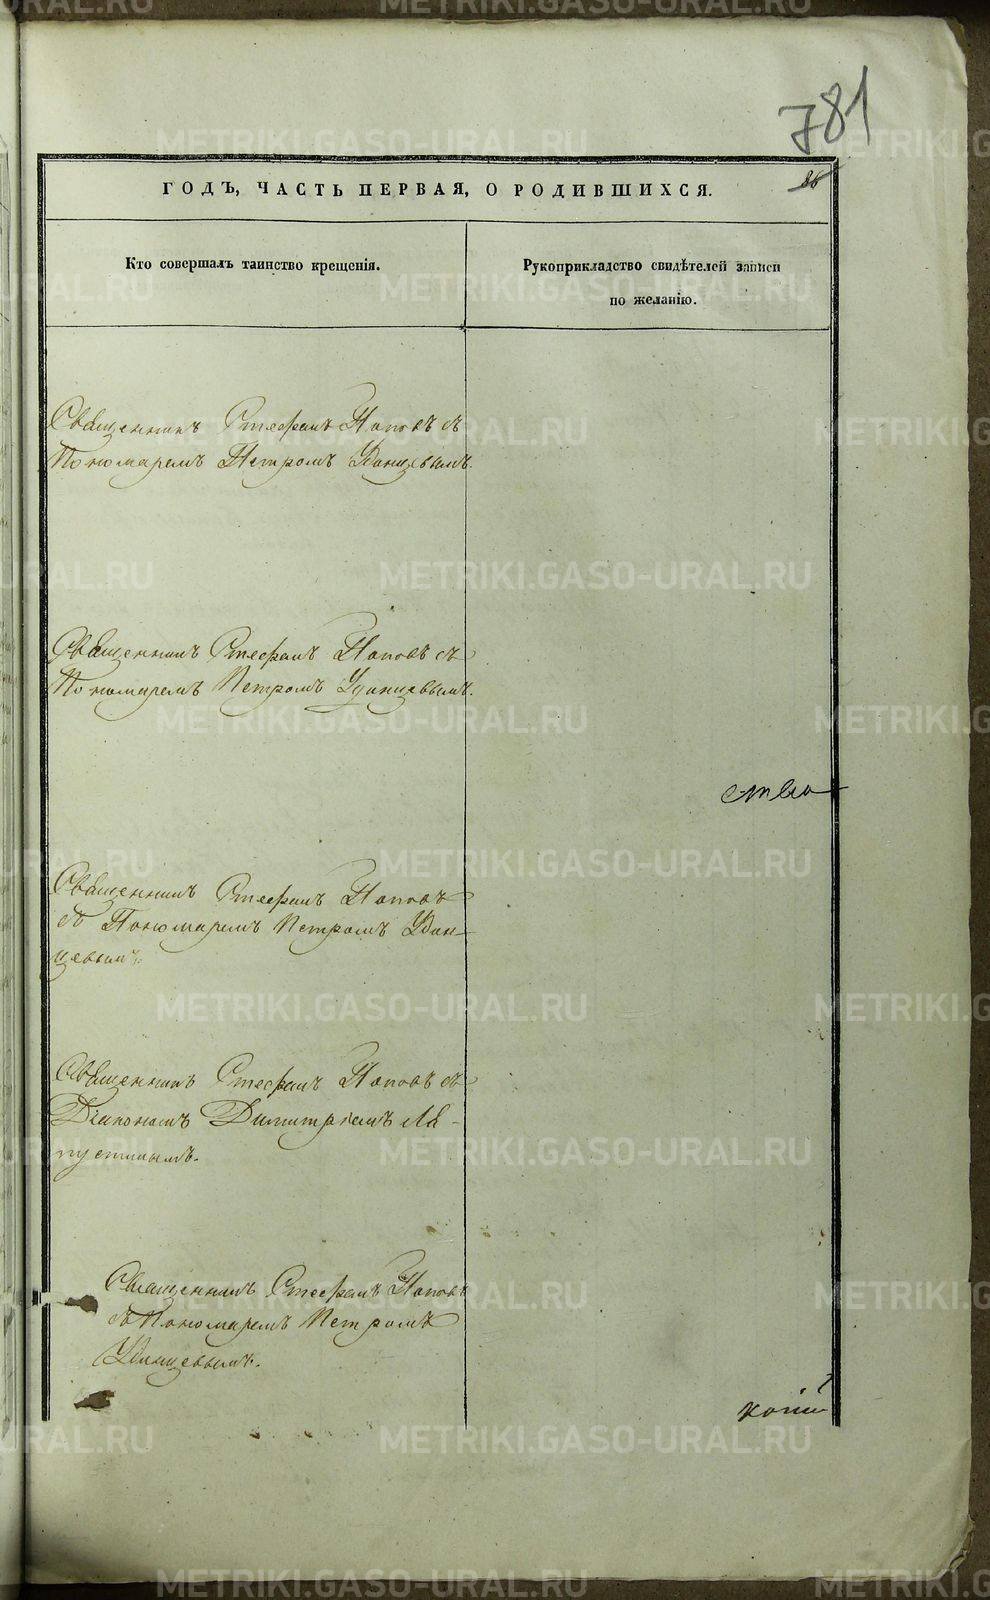 781
86
ГОДЪ, ЧАСТЬ ПЕРВАЯ, О РОДИВШИХСЯ.
Кто совершалъ таинство крещенія.
Рукоприкладство свидѣтелей записи
по желанію.
Священникъ Стефанъ Поповъ съ
Пономаремъ Петромъ Удинцевымъ.
Священникъ Стефанъ Поповъ съ
Пономаремъ Петромъ Удинцевымъ.
ство
Священникъ Стефанъ Поповъ
съ Пономаремъ Петромъ Удин-
цевымъ.
Священникъ Стефанъ Поповъ съ
Діакономъ Димитріемъ Ля-
пустинымъ.
Священникъ Стефанъ Поповъ
съ Пономаремъ Петромъ
Удинцевымъ.
METRIKI.GASO-URAL.RU